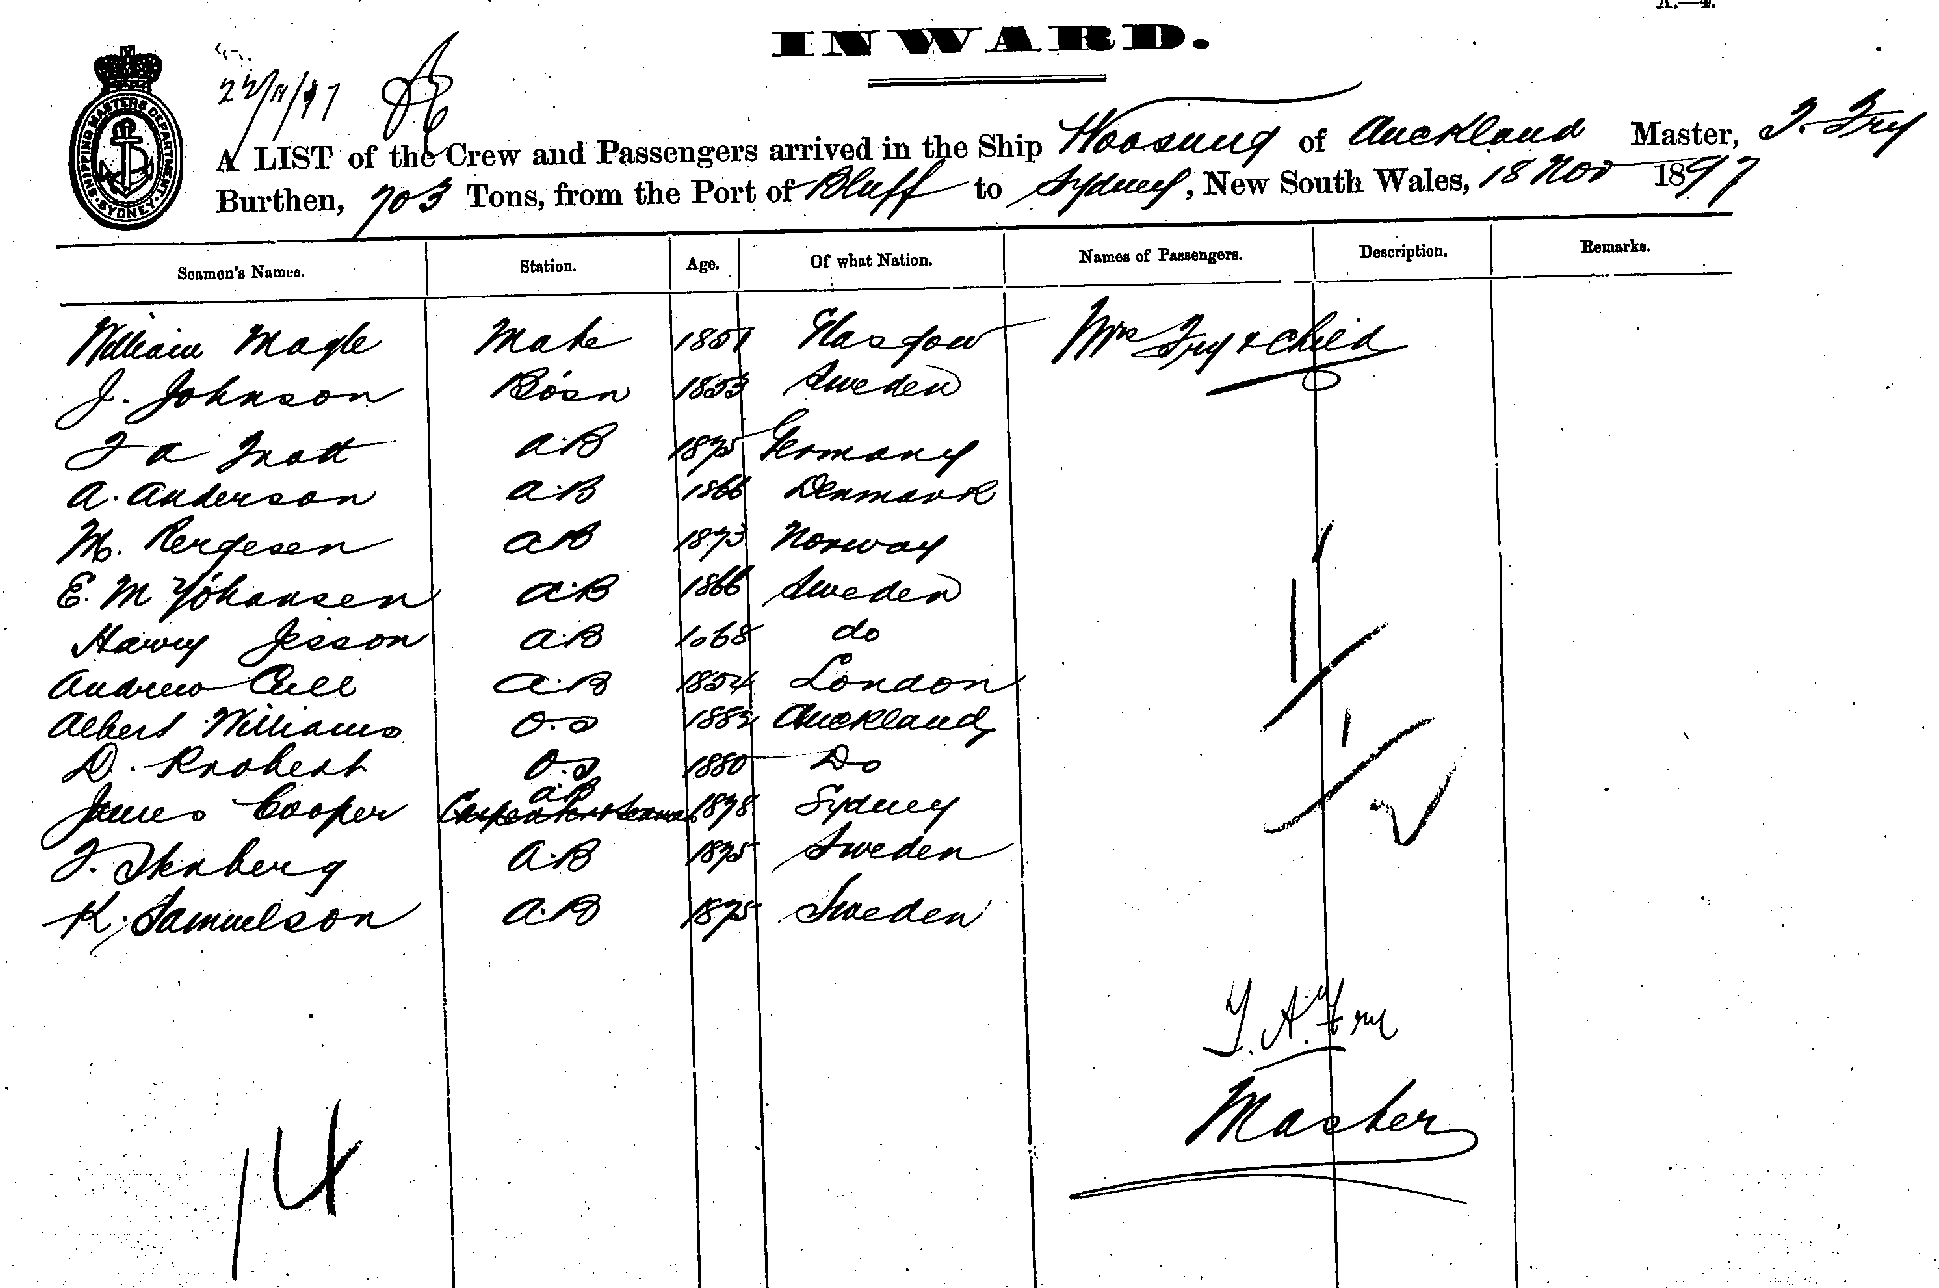 A.—4.
INWARD.
SHIPPING MASTERS DEPARTMENT SYDNEY
22/11/97
A LIST of the Crew and Passengers arrived in the Ship Woosung of Auckland Master, T. Fry
Burthen, 703 Tons, from the Port of Bluff to Sydney, New South Wales, 18 Nov 1897
Seamen's Names. Station. Age. Of what Nation. Names of Passengers. Description. Remarks.
William Mate 1851 Glasgow Mrs Fry & Child
J. Johnson Bosn 1853 Sweden
A.B 1875 Germany
A. Anderson A.B 1866 Denmark
M. A.B 1873 Norway
E. M Johansen A.B 1866 Sweden
Harry Jesson A.B 1868 do
Andrew A.B 1854 London
Albert Williams O.S Auckland
D. O.S 1880 Do
James Cooper A.B 1878 Sydney
A.B 1875 Sweden
K. Samuelson A.B 1875 Sweden
T. A. Fry
Master
14